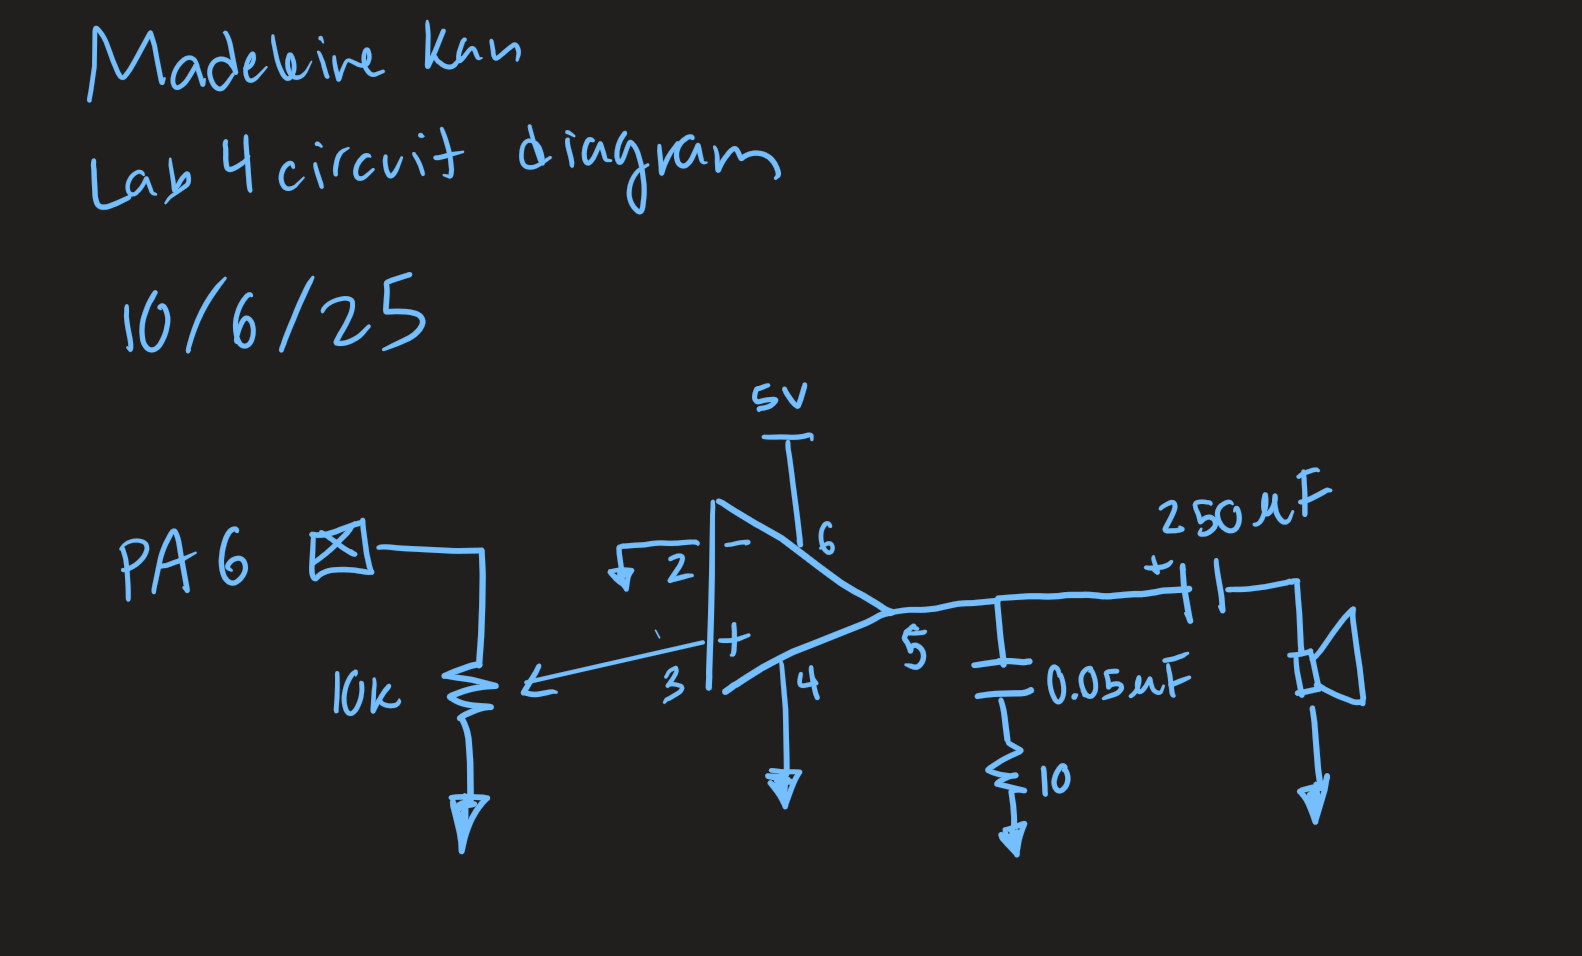 Madeleine Kan
Lab 4 circuit diagram
10/6/25
5V
PA6
6
250 µF
+
-
2
+
3
5
4
10k
0.05µF
10